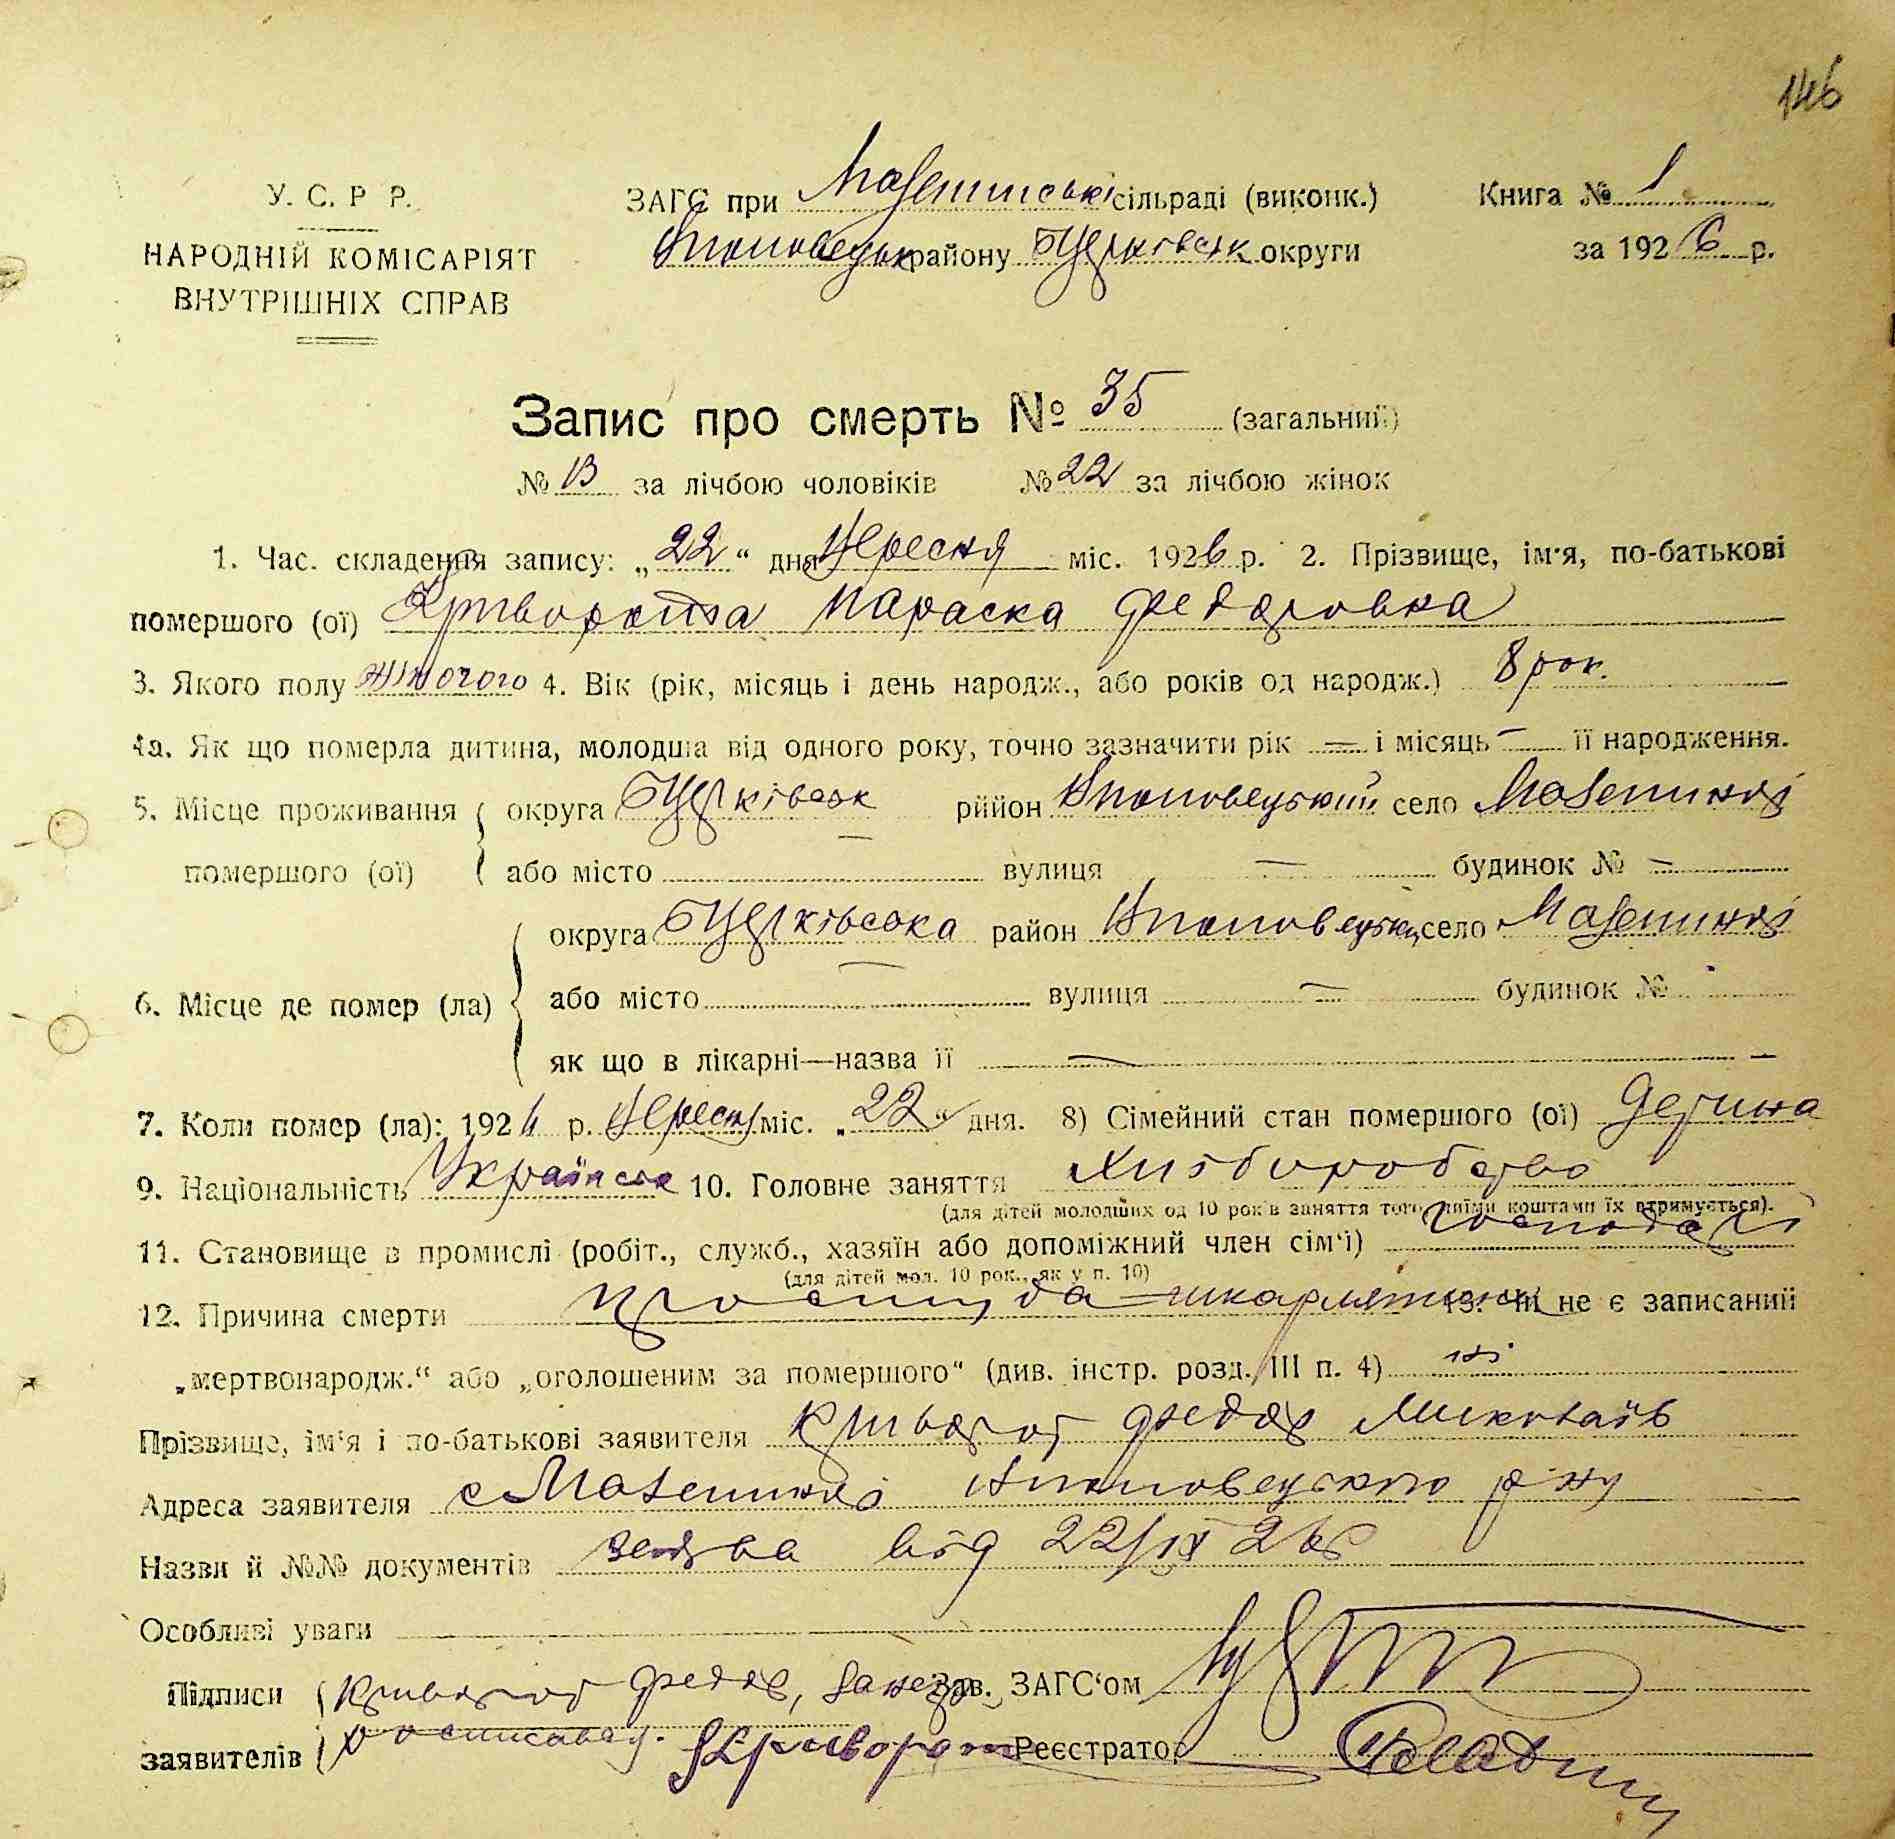 146
У. С. Р Р.
НАРОДНІЙ КОМІСАРІЯТ
ВНУТРІШНІХ СПРАВ
ЗАГС при Мазепинські сільраді (виконк.)
району Б Церківськ округи
Книга № 1
за 1926 р.
Запис про смерть № 35 (загальний)
№ 13 за лічбою чоловіків № 22 за лічбою жінок
1. Час. складення запису: „22“ дня Вересня міс. 1926 р. 2. Прізвище, ім'я, по-батькові
помершого (ої) Криворота Параска Федоровна
3. Якого полу жіночого 4. Вік (рік, місяць і день народж., або років од народж.) 8 рок.
4а. Як що померла дитина, молодша від одного року, точно зазначити рік — і місяць — її народження.
5. Місце проживання округа Б Церківськ рйійон село Мазепинці
помершого (ої) або місто — вулиця — будинок № —
6. Місце де помер (ла) округа Б Церківська район село Мазепинці
або місто — вулиця — будинок №
як що в лікарні—назва її —
7. Коли помер (ла): 192 р. Вересня міс. „22“ дня. 8) Сімейний стан помершого (ої) Детина
9. Національність Українська 10. Головне заняття Хліборобство
(для дітей молодших од 10 років заняття того, чиїми коштами їх втримується).
11. Становище в промислі (робіт., служб., хазяїн або допоміжний член сім'ї) господарі
(для дітей мол. 10 рок., як у п. 10)
12. Причина смерти простуда шкарлятина 13. Чи не є записаний
„мертвонародж.“ або „оголошеним за помершого“ (див. інстр. розд. III п. 4) ні
Прізвище, ім'я і по-батькові заявителя Криворот Федор Миколаїв
Адреса заявителя с Мазепинці р ну
Назви й №№ документів заява від 22/IX 26 р
Особливі уваги
Підписи Криворот Федор, Зав. ЗАГС'ом
заявителів росписавсь. Криворот Реєстратор